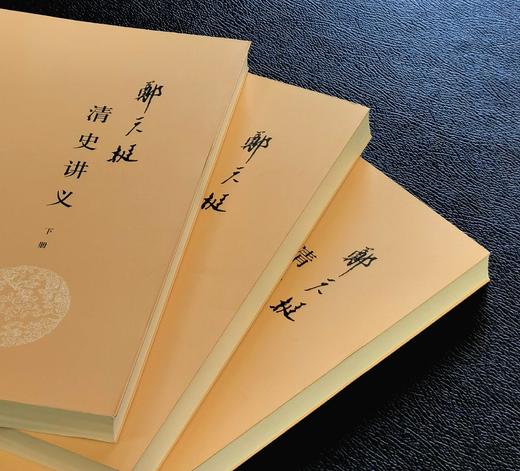 鄭天挺
清史讲义
下册
鄭天挺
鄭天挺
清